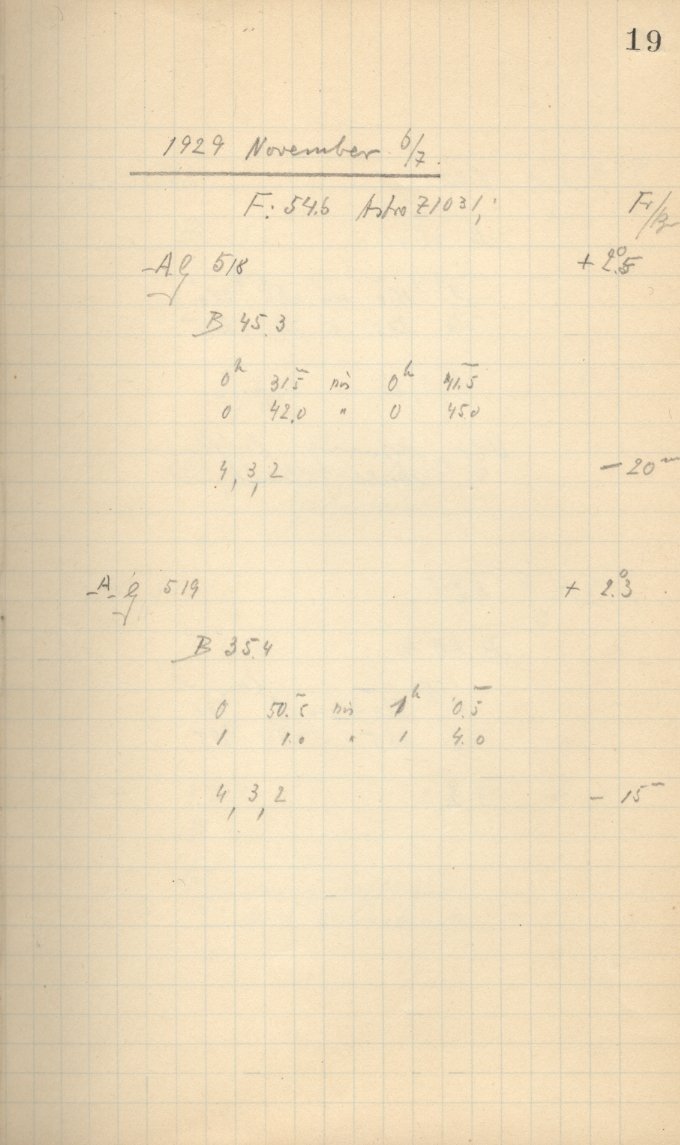 19
1929 November 6/7.
F: 54.6 Astro Z1031; Fr/Br
AG 518 + 2°.5
B 45.3
0h 31.5 bis 0h 41.5
0 42.0 " 0 45.0
4, 3, 2 - 20m
AG 519 + 2°.3
B 35.4
0 50.5 bis 1h 0.5
1 1.0 " 1 4.0
4, 3, 2 - 15m